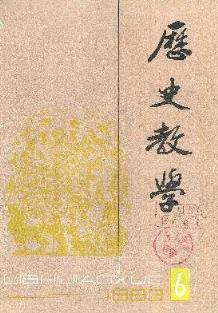 歷史教學
LISHIJIAOXUE
1983
6